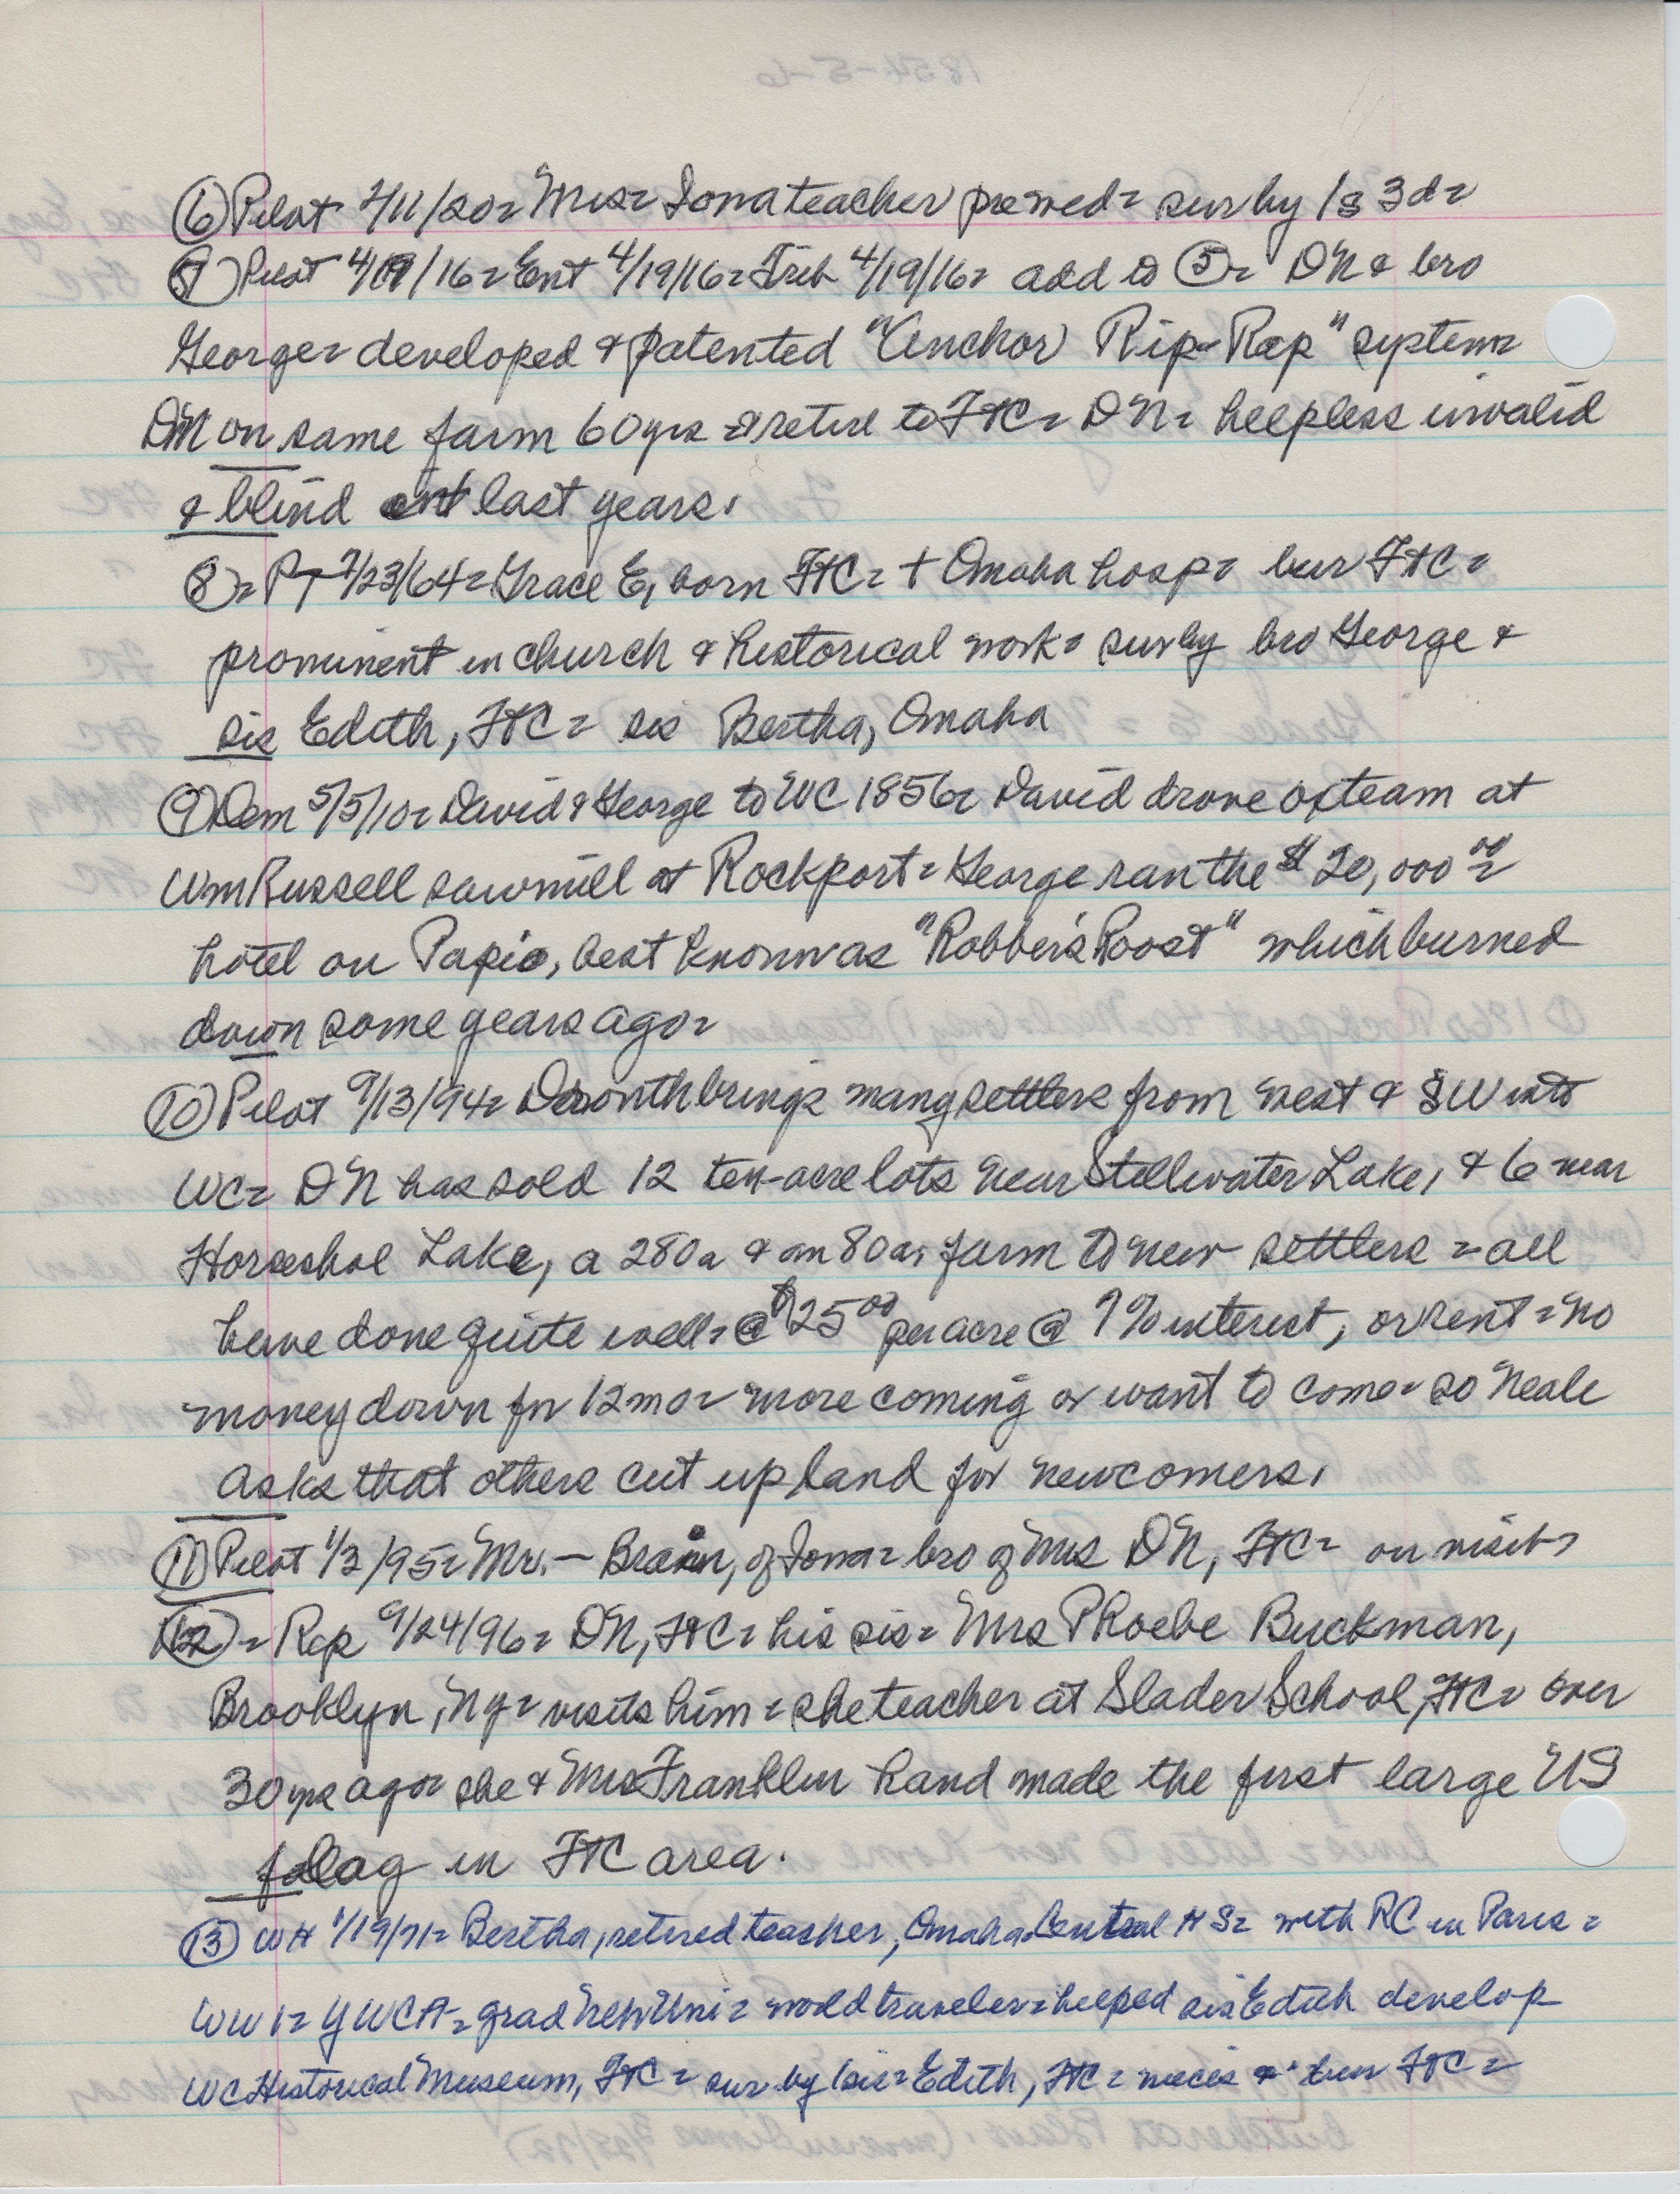 ⑥ Pilot 2/11/20= Mrs= Iowa teacher premed= sur by 1s 3d=
⑦ Pilot 4/19/16= Ent 4/19/16= Trib 4/19/16= add to ⑤= DN & bro
George= developed & patented "Anchor Rip-Rap" system=
DN on same farm 60 yrs & retire to FtC= DN= helpless invalid
& blind last years.
⑧= PT 7/23/64= Grace E, born FtC= + Omaha hosp= bur FtC=
prominent in church & historical work= sur by bro George &
sis Edith, FtC= sis Bertha, Omaha
⑨ Dem 5/5/10= David & George to WC 1856= David drove ox team at
Wm Russell sawmill at Rockport= George ran the $20,000 00=
hotel on Papio, best known as "Robber's Roost" which burned
down some years ago=
⑩ Pilot 9/13/94= Drouth brings many settlers from west & SW into
WC= DN has sold 12 ten-acre lots near Stillwater Lake, & 6 near
Horseshoe Lake, a 280a & an 80a. farm to new settlers= all
have done quite well= @ $25 00 per acre @ 7% interest, or rent= no
money down for 12 mo= more coming or want to come= so Neale
asks that others cut up land for newcomers.
⑪ Pilot 1/3/95= Mr. — Brain, of Iowa= bro of Mrs DN, FtC= on visit=
⑫= Rep 9/24/96= DN, FtC= his sis= Mrs Phoebe Buckman,
Brooklyn, Ny= visits him= she teacher at Slader School, FtC= over
30 yrs ago= she & Mrs Franklin hand made the first large US
flag in FtC area.
⑬ WH 1/19/71= Bertha, retired teacher, Omaha Central HS= with RC in Paris=
WW1= YWCA= grad Neb Uni= world traveler= helped sis Edith develop
WC Historical Museum, FtC= sur by 1 sis= Edith, FtC= nieces & bur FtC=